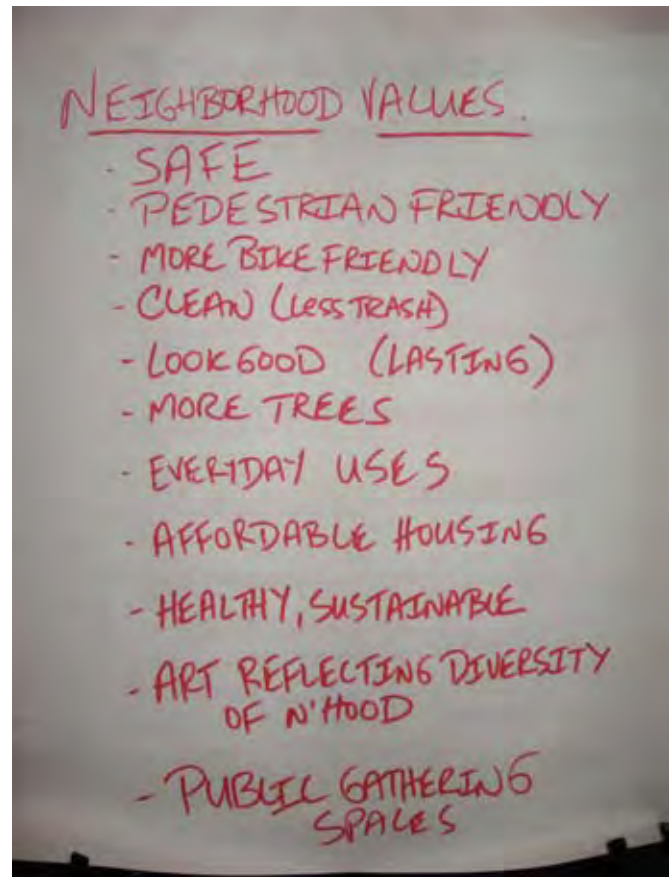 NEIGHBORHOOD VALUES.
- SAFE
- PEDESTRIAN FRIENDLY
- MORE BIKE FRIENDLY
- CLEAN (LESS TRASH)
- LOOK GOOD (LASTING)
- MORE TREES
- EVERYDAY USES
- AFFORDABLE HOUSING
- HEALTHY, SUSTAINABLE
- ART REFLECTING DIVERSITY
OF N'HOOD
- PUBLIC GATHERING
SPACES